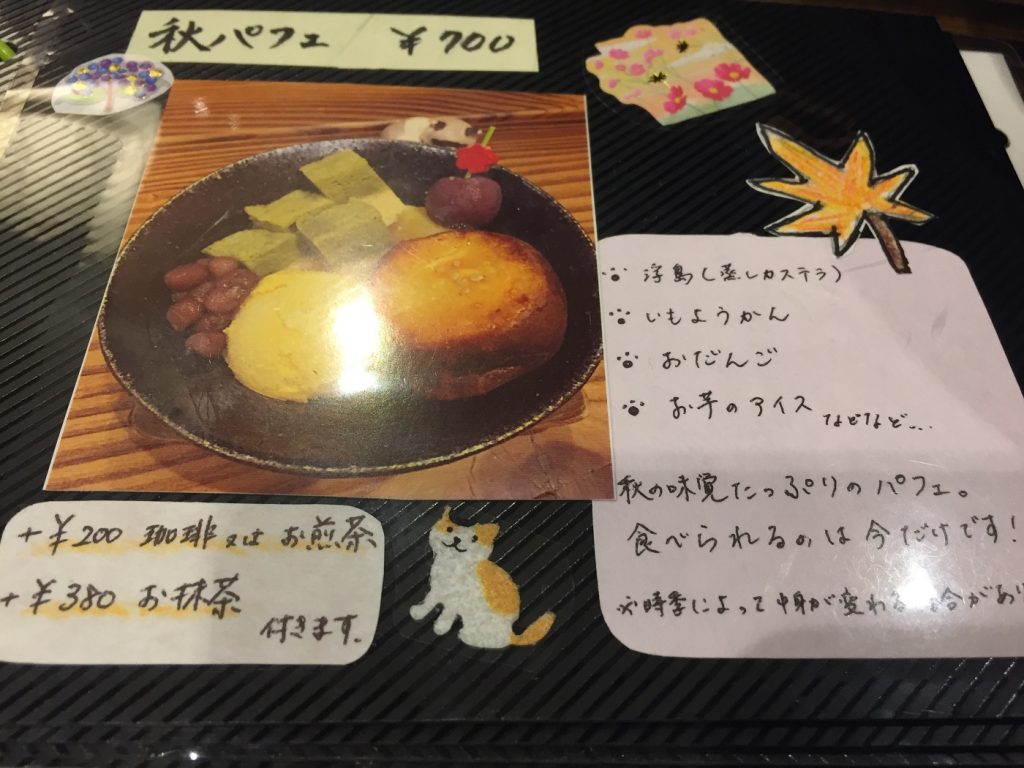 秋パフェ ¥700
浮島(蒸しカステラ)
いもようかん
おだんご
お芋のアイス
などなど...
秋の味覚たっぷりのパフェ。
食べられるのは今だけです!
※時季によって中身が変わる場合があり
+¥200 珈琲又はお煎茶
+¥380 お抹茶
付きます。